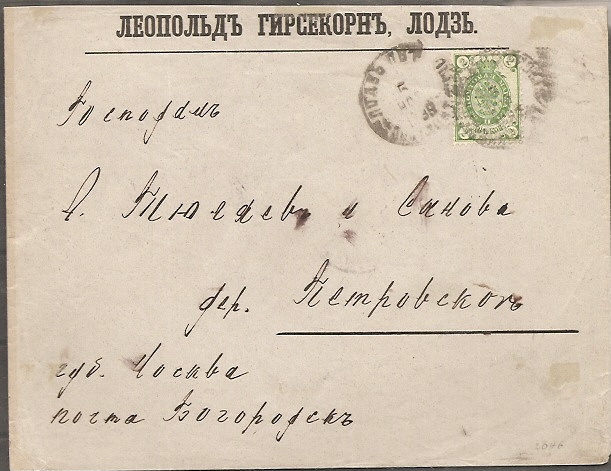 ЛЕОПОЛЬДЪ ГИРСЕКОРНЪ, ЛОДЗЬ.
Господамъ
А. Тюляевъ и Сынова
дер. Петровскомъ
губ. Москва
почта Богородскъ